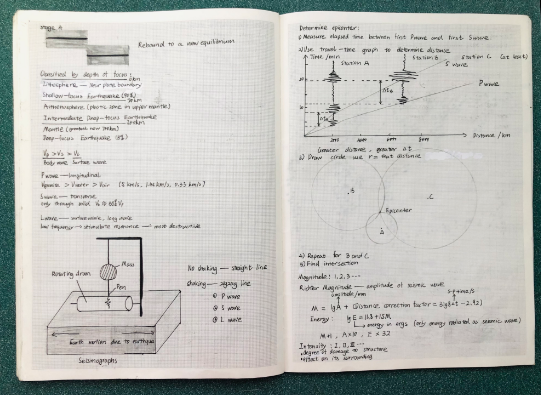 Stage 4
Rebound to a new equilibrium
Classified by depth of focus:
Lithosphere — Near plate boundary
Shallow-focus Earthquake
Asthenosphere (plastic zone in upper mantle)
Intermediate Deep-focus Earthquake
Mantle
Deep-focus Earthquake
Body wave Surface wave
P wave — longitudinal
S wave — transverse
only through solid
L wave — surface wave, long wave
low frequency → stimulate resonance → most destructive
Mass
Pen
Rotating drum
Earth motion due to earthquake
Seismographs
No shaking — straight line
Shaking — zigzag line
① P wave
② S wave
③ L wave
Determine epicenter:
1) Measure elapsed time between first P wave and first S wave
2) Use travel-time graph to determine distance
Time/min
Station A
Station B
Station C
S wave
P wave
Distance/km
Greater distance, greater Δt
3) Draw circle use r = that distance
B
C
Epicenter
A
4) Repeat for B and C
5) Find intersection
Magnitude: 1, 2, 3 ...
Richter Magnitude — amplitude of seismic wave
M = lg A + (distance correction factor = 3 lg 8Δt - 2.92)
Energy: lg E = 11.8 + 1.5M
energy in ergs (only energy radiated as seismic wave)
M+1, A×10, E×32
Intensity: I, II, III ...
• degree of damage to structure
• effect on its surrounding